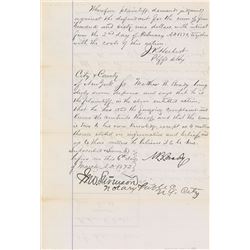 Wherefore plaintiff demand judgment
against the defendant for the sum of five
hundred and sixty one dollars with interest
from the 2nd day of February AD 1873 together
with the costs of this action
Plffs Atty
City & County
of New York ss. Mathew B. Brady being
duly sworn deposes and says that he is
the plaintiff in the above entitled action
that he has read the foregoing complaint and
knows the contents thereof and that the same
is true to his own knowledge, except as to matters
therein stated on information and belief and
as to those matters he believes it to be true
before me this 6th day of
March AD 1873
M B Brady
Notary Public
N.Y. City